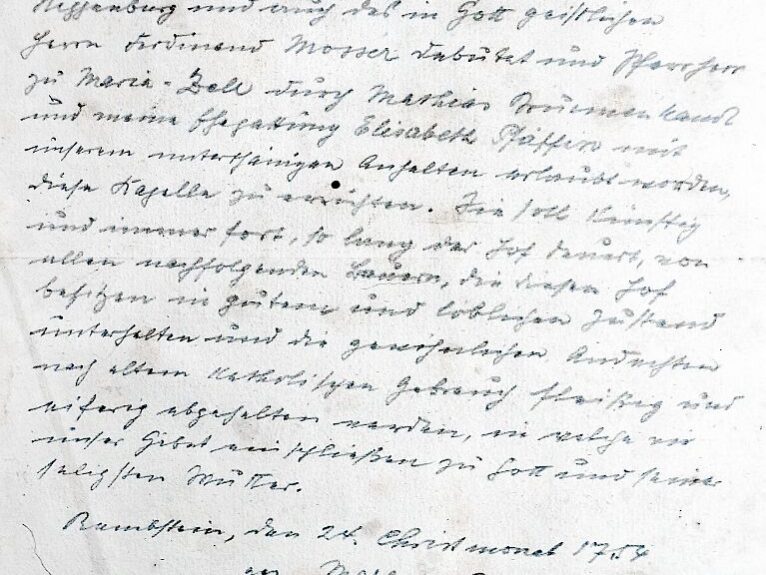 und auch des in Gott geistlichen
Herrn Ferdinand Mosser Debutat und Pfarrherr
zu Maria-Zell durch Mathias
und meine Ehegattung Elisabeth Pfäffin mit
unserem unterthänigen Anhalten erlaubt worden,
diese Kapelle zu errichten. Sie soll künftig
und immer fort, so lang der Hof dauert, von
allen nachfolgenden Bauern, die diesen Hof
besitzen in gutem und löblichen Zustand
unterhalten und die gewöhnlichen Andachten
nach altem katholischen Gebrauch fleißig und
eiferig abgehalten werden, in welche wir
unser Gebet einschließen zu Gott und seiner
seligsten Mutter.
Rambstein, den 24. Christmonat 1754